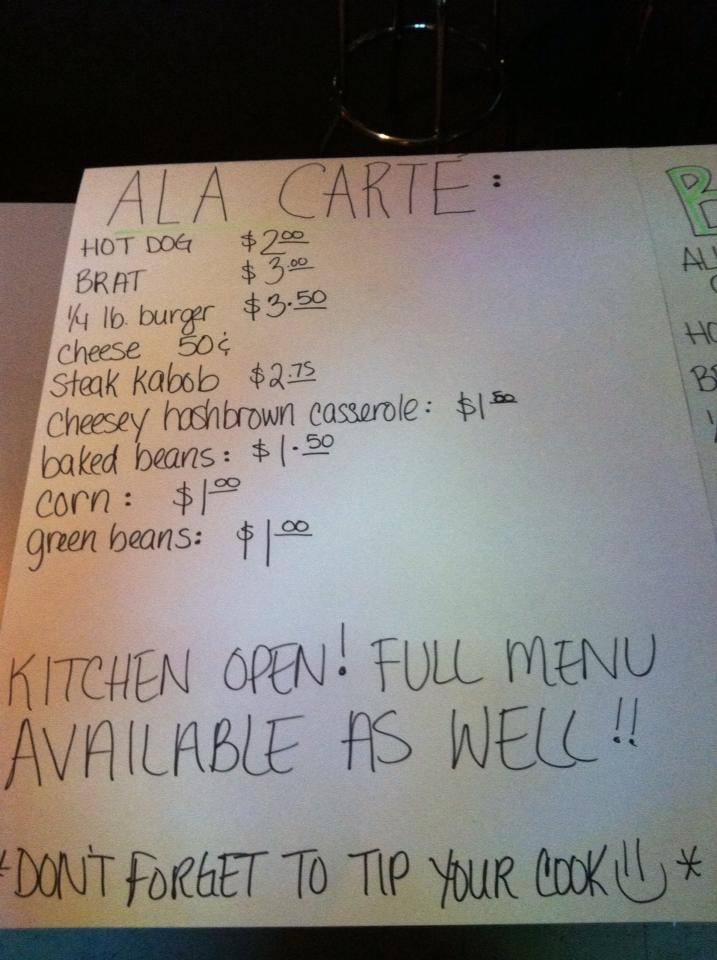 ALA CARTÉ:
HOT DOG $2.00
BRAT $3.00
1/4 lb. burger $3.50
cheese 50¢
steak kabob $2.75
cheesey hashbrown casserole: $1.50
baked beans: $1.50
corn: $1.00
green beans: $1.00
KITCHEN OPEN! FULL MENU
AVAILABLE AS WELL!!
*DON'T FORGET TO TIP YOUR COOK *